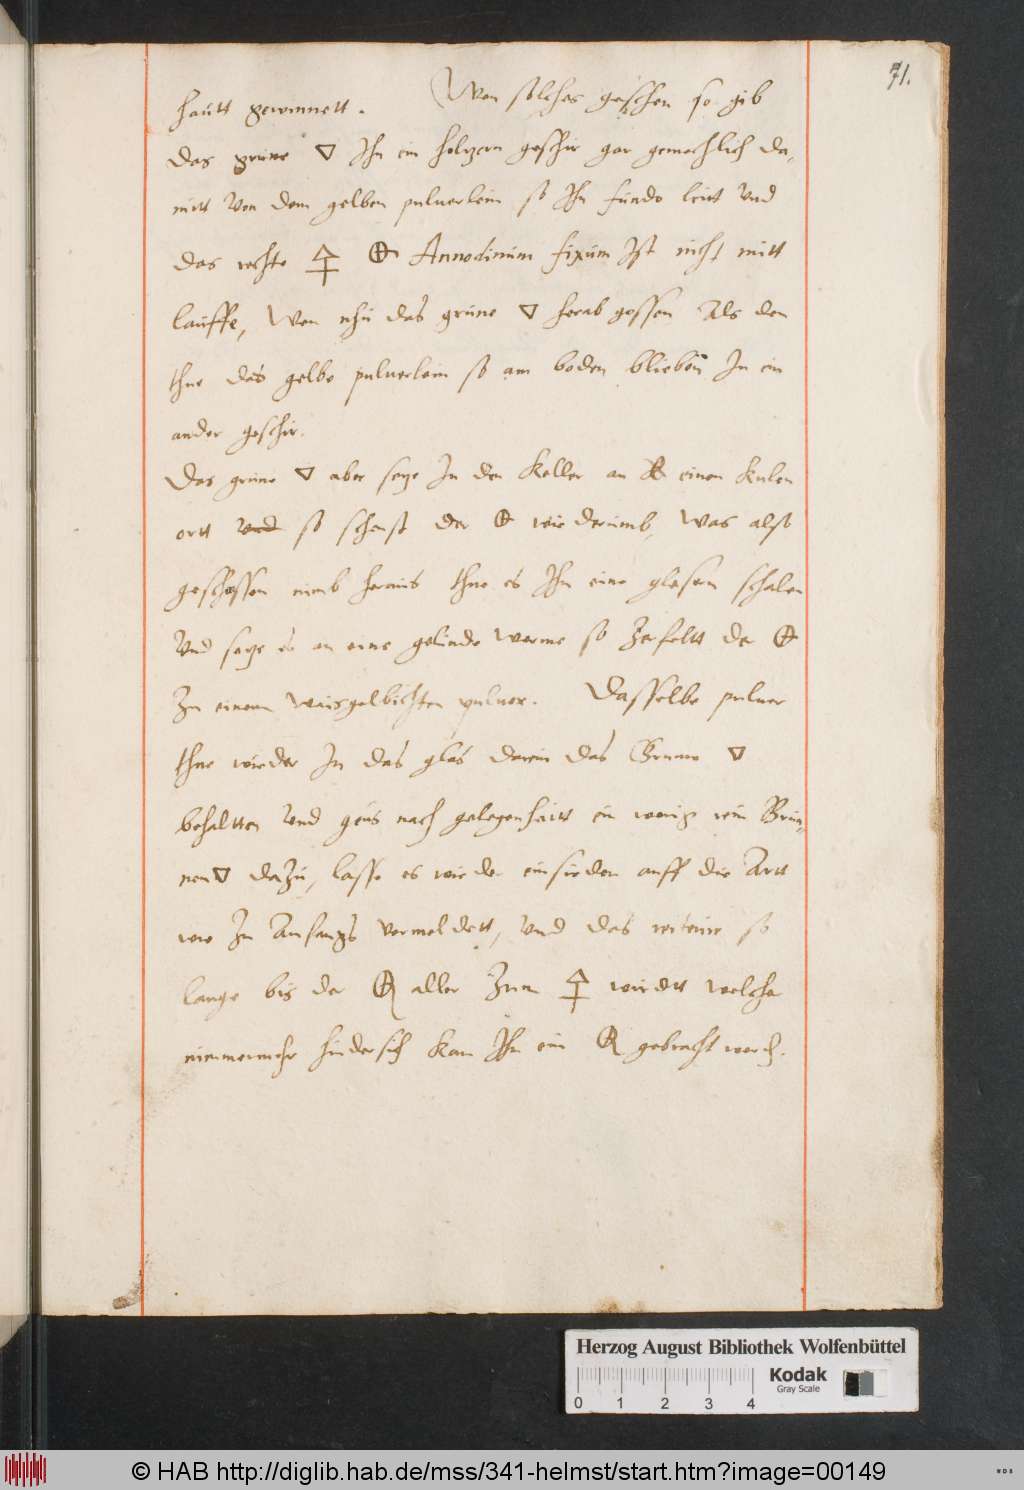 71.
hautt gewinnett. Wen solches geschen so gib
das grüne 🜄 Ihn ein holzern geschir gar gemechlich da,
mitt von dem gelben puluerlein so Ihn fundo leitt vnd
das rechte 🜍 🜨 Annodinum fixum Ist nicht mitt
lauffe, Wen nhu das grüne 🜄 herab gossen Als den
thue das gelbe puluerlein so am boden blieben In ein
ander geschir.
Das grüne 🜄 aber seze In den Keller an einen kulen
ortt vnd so scheust der wiederumb, Was also
geschossen nimb heraus thue es Ihn eine glesern schalen
Vnd seze es an eine gelinde Werme so Zerfeltt der
Zu einem Weisgelbichten puluer. Dasselbe puluer
thue wieder In das glas darein das Grune 🜄
behaltten Vnd geus nach gelegenheitt ein wenig rein Brun,
nen 🜄 dazu, lasse es wieder einsieden auff die Artt
wie Zu Anfangs vermeldett, Vnd das so
lange bis der aller Zum 🜍 wirdtt welcher
nimmermehr hindersich kan Ihn ein gebracht werden.
Herzog August Bibliothek Wolfenbüttel
Kodak
Gray Scale
0 1 2 3 4
© HAB http://diglib.hab.de/mss/341-helmst/start.htm?image=00149